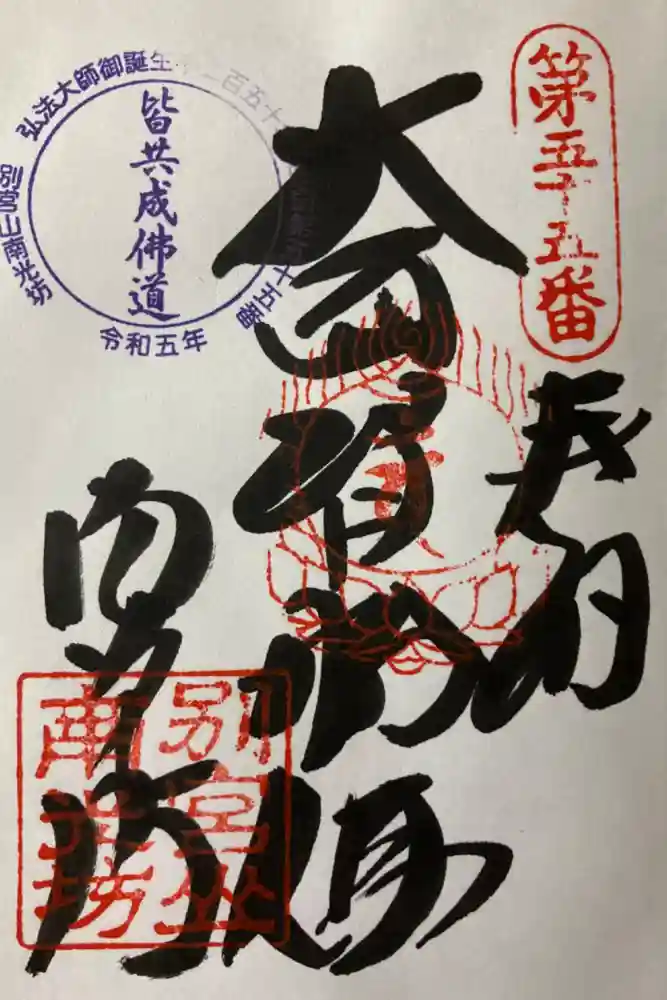 第五十五番
奉納
大通智勝佛
南光坊
弘法大師御誕生千二百五十
十五番
別宮山南光坊
令和五年
皆共成佛道
別宮山
南光坊